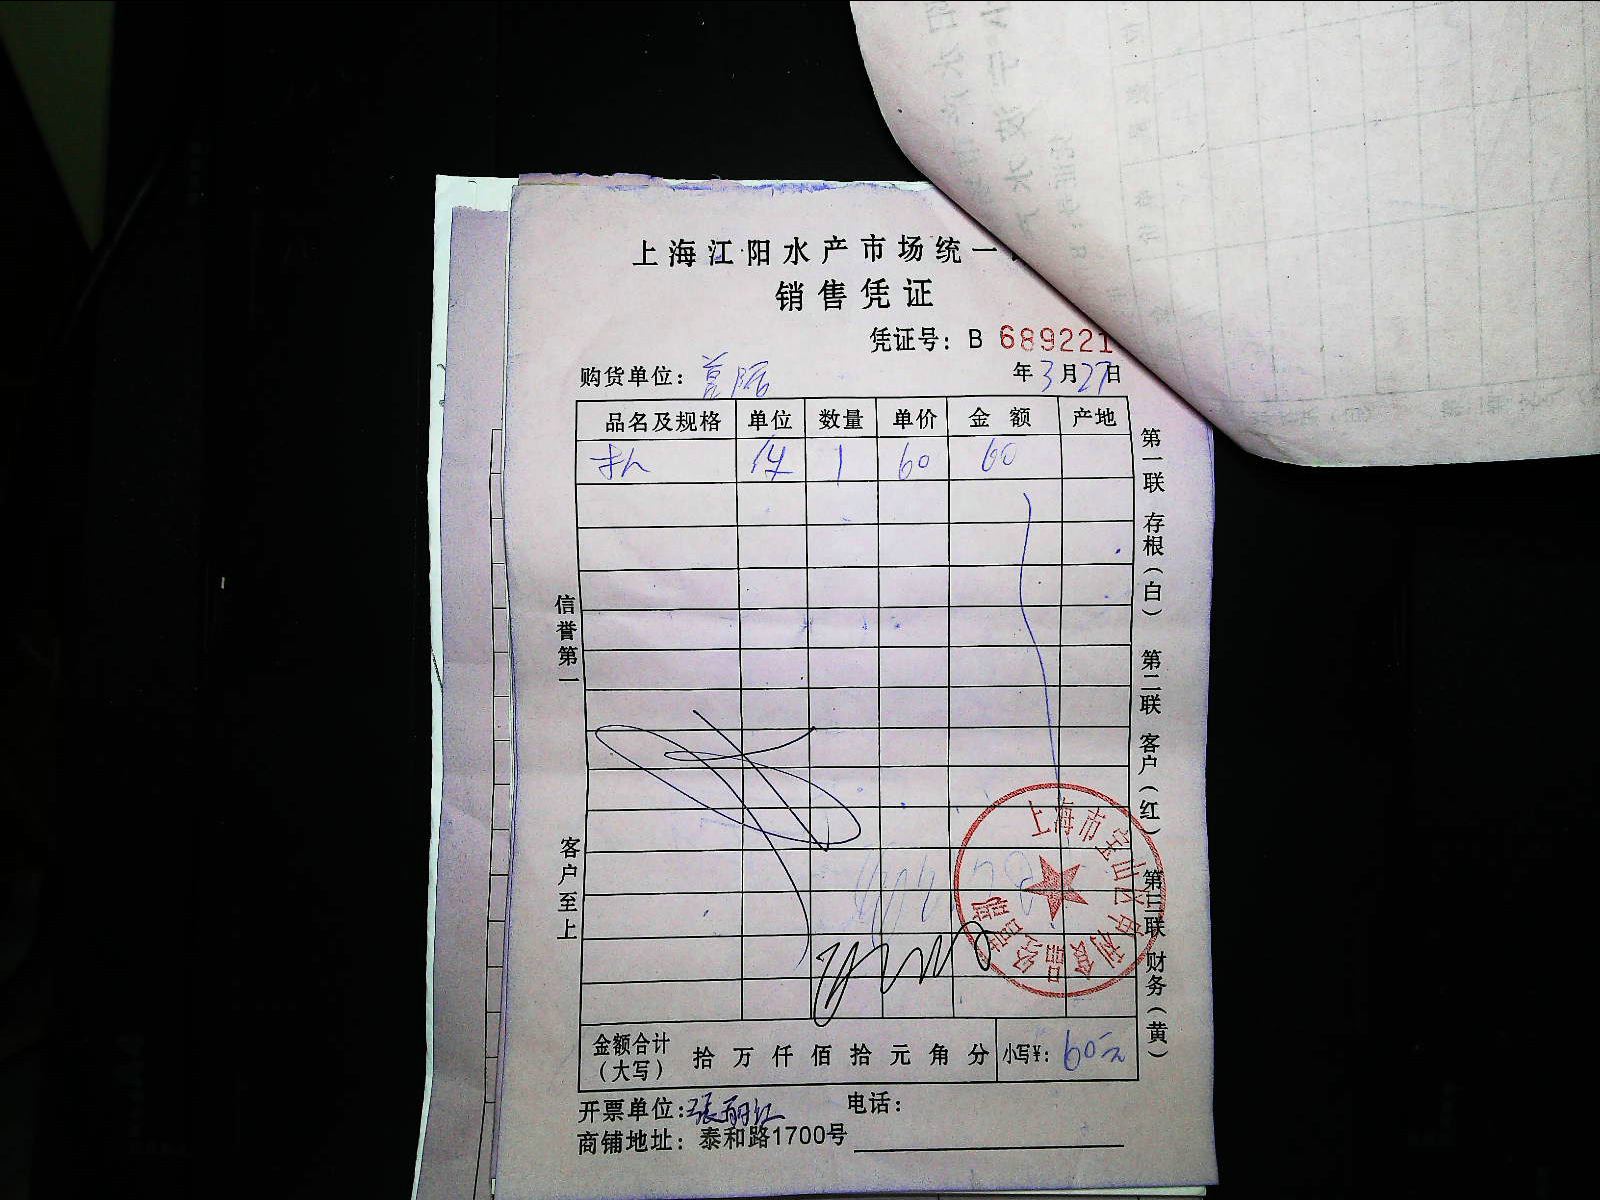 上海江阳水产市场统一
销售凭证
凭证号：B 689221
购货单位：
年3月27日
品名及规格 单位 数量 单价 金额 产地
件 1 60 60
信誉第一
客户至上
第一联 存根（白） 第二联 客户（红） 第三联 财务（黄）
上海市宝山区
金额合计（大写） 拾万仟佰拾元角分 小写¥：60元
开票单位：張丽红 电话：
商铺地址：泰和路1700号